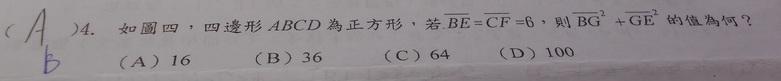 ( A )4. 如圖四，四邊形 ABCD 為正方形，若 BE=CF=6，則 BG² +GE² 的值為何？
B (A) 16 (B) 36 (C) 64 (D) 100